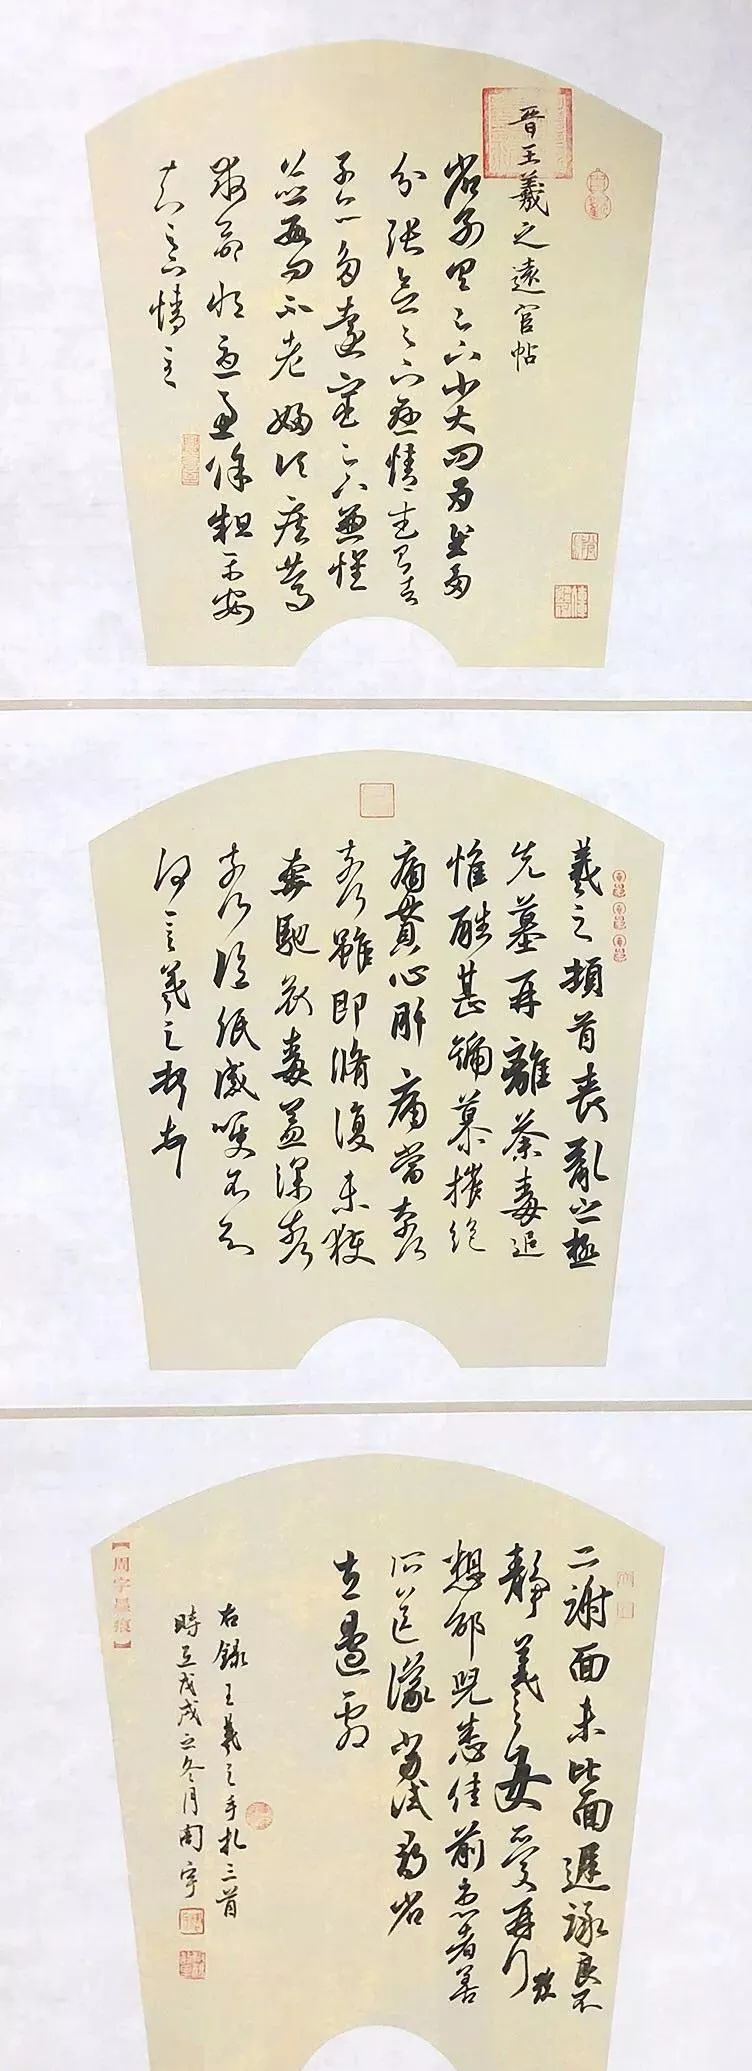 晋王羲之遠宦帖
省別具足下小大問爲慰多
分張念足下懸情武昌諸
子亦多遠宦足下兼懷
並數問不老婦頃疾篤
救命恒憂慮餘粗平安
知足下情至
羲之頓首喪亂之極
先墓再離荼毒追
惟酷甚號慕摧絕
痛貫心肝痛當奈何
奈何雖即脩復未獲
奔馳哀毒益深奈何
奈何臨紙感哽不知
何言羲之頓首
二謝面未比面遲詠良不
静羲之女愛再
想邰兒悉佳前患者善
所送議當試尋省
左邊劇
右錄王羲之手札三首
時在戊戌之冬月周宇
【周宇墨痕】